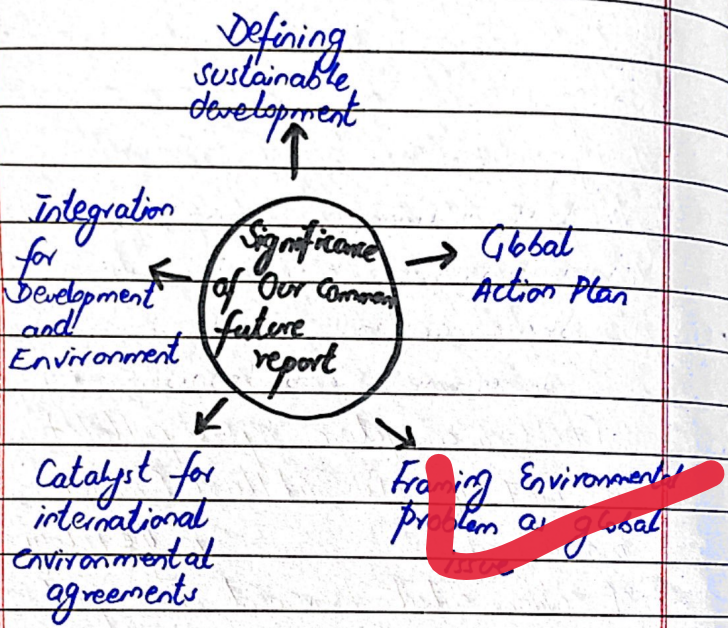 Defining
sustainable
development
Integration
for
Development
and
Environment
Significance
of Our Common
future
report
Global
Action Plan
Catalyst for
international
environmental
agreements
Framing Environmental
problem as global
issue